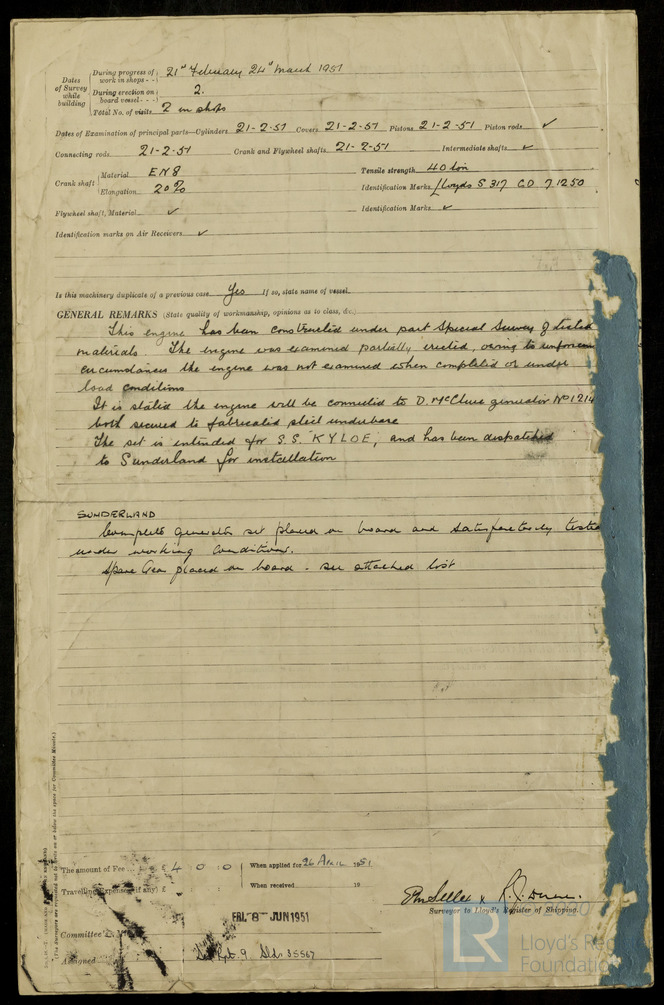 Dates of Survey while building
During progress of work in shops - - 21st February 24th March 1951
During erection on board vessel - - - 2.
Total No. of visits 2 in shops
Dates of Examination of principal parts—Cylinders 21-2-51 Covers 21-2-51 Pistons 21-2-51 Piston rods ✓
Connecting rods 21-2-51 Crank and Flywheel shafts 21-2-51 Intermediate shafts ✓
Crank shaft Material EN8 Tensile strength 40 ton
Elongation 20% Identification Marks Lloyds S 317 CD 7 1250
Flywheel shaft, Material ✓ Identification Marks ✓
Identification marks on Air Receivers ✓
Is this machinery duplicate of a previous case Yes If so, state name of vessel
GENERAL REMARKS (State quality of workmanship, opinions as to class, &c.)
This engine has been constructed under part Special Survey of tested
materials. The engine was examined partially erected, owing to unforeseen
circumstances the engine was not examined when completed or under
load conditions
It is stated the engine will be connected to D. McClure generator No 1214
both secured to fabricated steel underbase
The set is intended for S.S. "KYLOE", and has been dispatched
to Sunderland for installation
SUNDERLAND
Complete generator set placed on board and satisfactorily tested
under working conditions.
Spare Gear placed on board - see attached list
The amount of Fee £ 4 0 0 When applied for 26 APRIL 1951
Travelling Expenses (if any) £ When received 19
Surveyor to Lloyd's Register of Shipping.
FRI. 8 JUN 1951
Committee's
Assigned See Rpt. 9 Sld. 35567
LR
Lloyd's Reg
Foundation